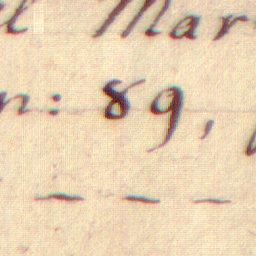 l Mar
n: 89,
— — —